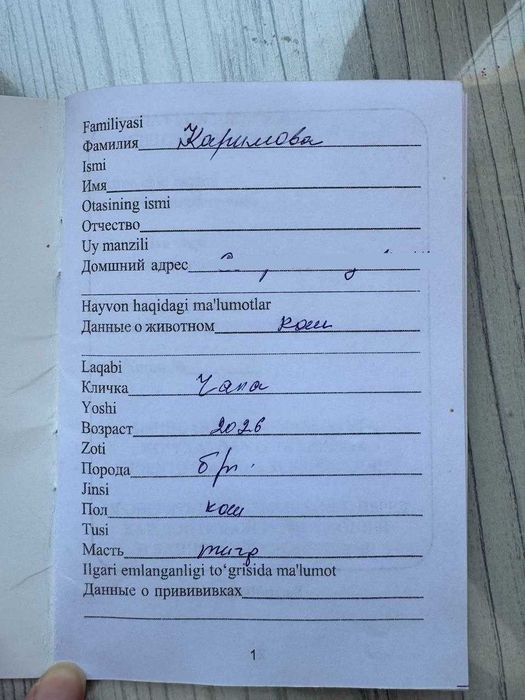 Familiyasi
Фамилия Каримова
Ismi
Имя
Otasining ismi
Отчество
Uy manzili
Домшний адрес
Hayvon haqidagi ma'lumotlar
Данные о животном кош
Laqabi
Кличка Чапа
Yoshi
Возраст 2026
Zoti
Порода бр.
Jinsi
Пол кош
Tusi
Масть тигр
Ilgari emlanganligi to‘grisida ma'lumot
Данные о привививках
1